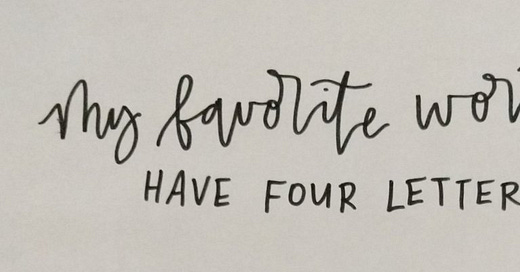 my favorite wor
HAVE FOUR LETTER